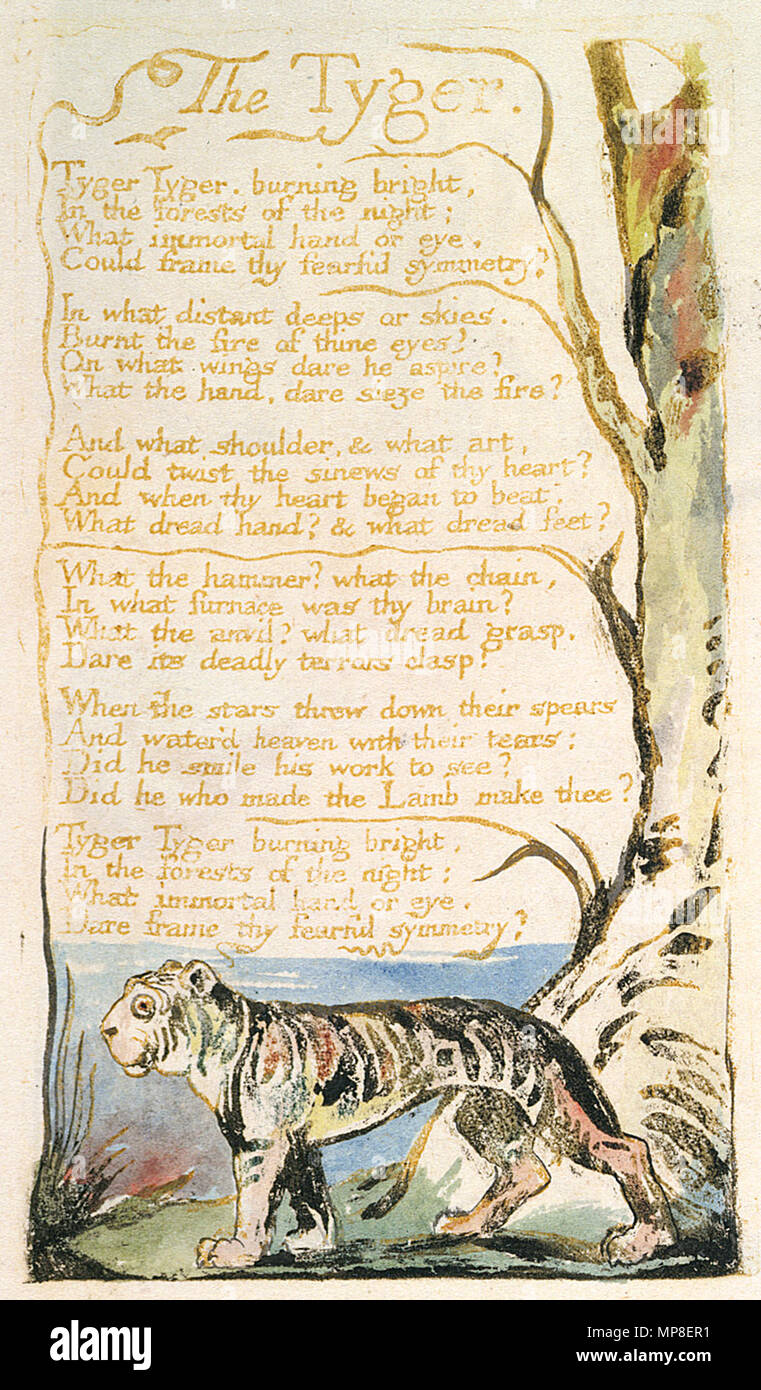 The Tyger.
Tyger Tyger. burning bright,
In the forests of the night;
What immortal hand or eye.
Could frame thy fearful symmetry?
In what distant deeps or skies.
Burnt the fire of thine eyes?
On what wings dare he aspire?
What the hand, dare sieze the fire?
And what shoulder, & what art,
Could twist the sinews of thy heart?
And when thy heart began to beat,
What dread hand? & what dread feet?
What the hammer? what the chain,
In what furnace was thy brain?
What the anvil? what dread grasp.
Dare its deadly terrors clasp!
When the stars threw down their spears
And water'd heaven with their tears:
Did he smile his work to see?
Did he who made the Lamb make thee?
Tyger Tyger burning bright,
In the forests of the night:
What immortal hand or eye.
Dare frame thy fearful symmetry?
alamy
alamy
alamy
alamy
Image ID: MP8ER1
www.alamy.com